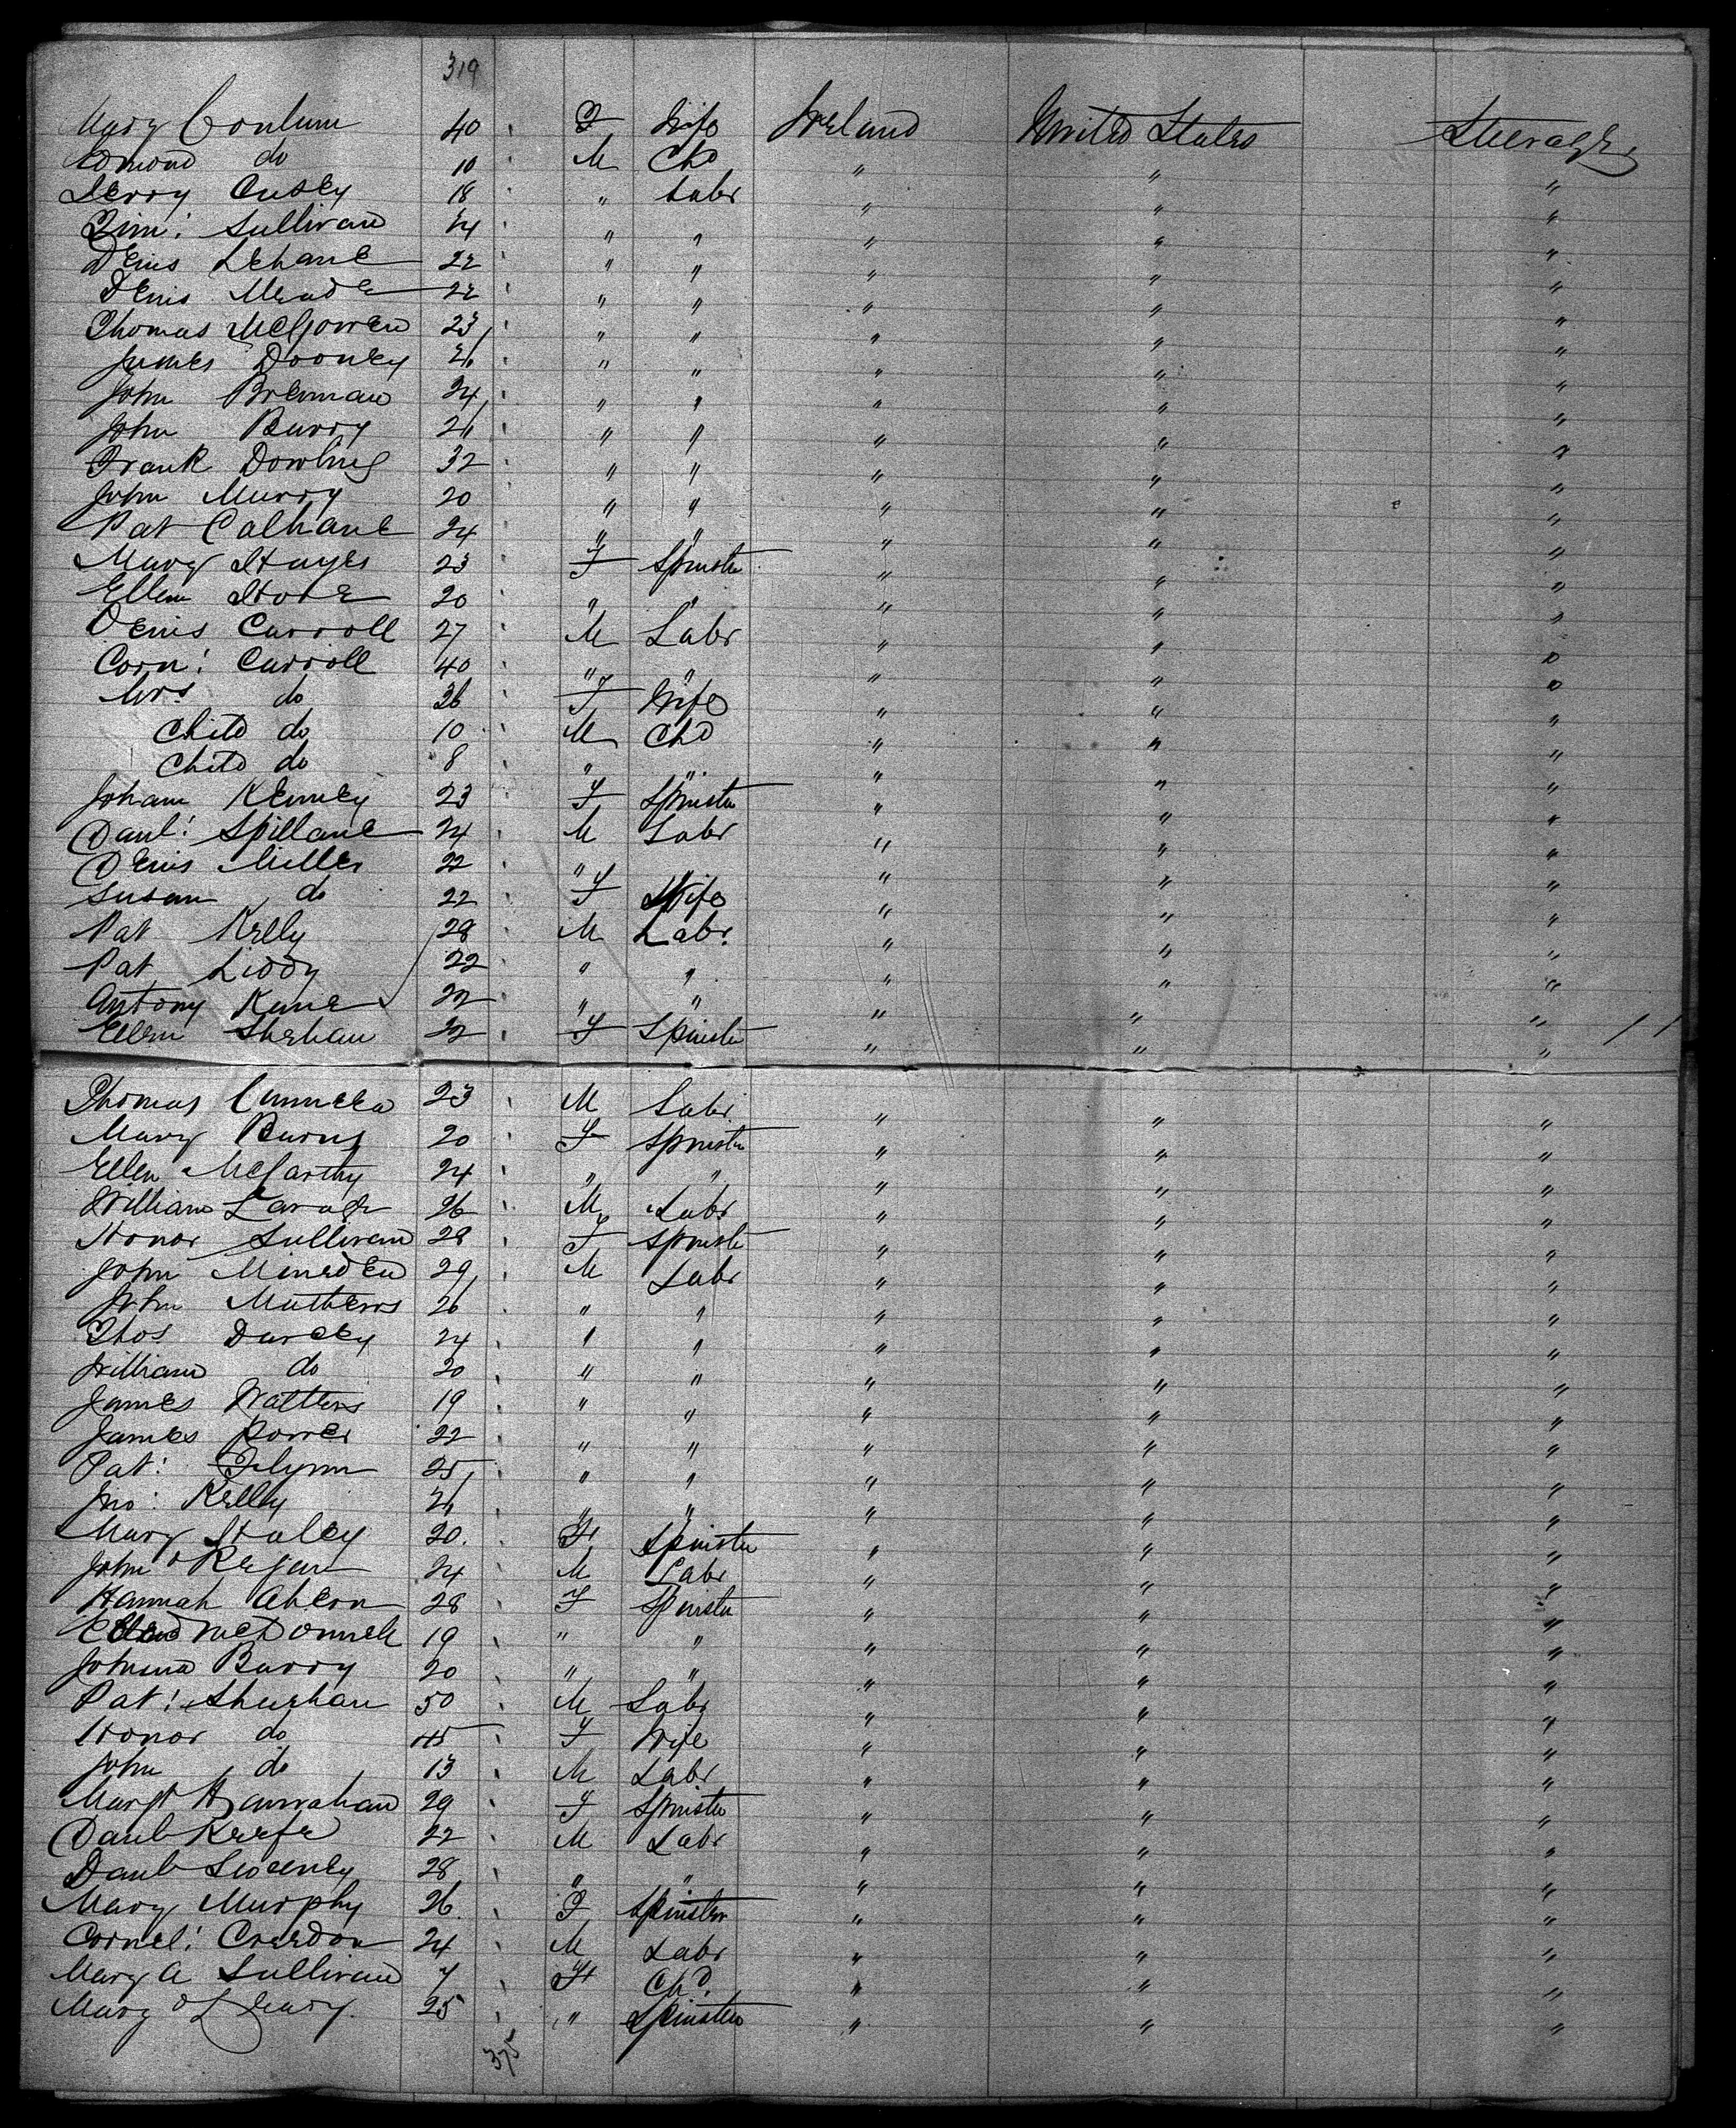 319
Mary 40 F Wife Ireland United States Steerage
Edmond do 10 M Chd " " "
Derry Cusey 18 " Labr " " "
Tim: Sullivan 24 " " " " "
Denis Lehane 22 " " " " "
Denis Meade 22 " " " " "
Thomas McGowen 23 " " " " "
James Dooney 21 " " " " "
John Brennan 24 " " " " "
John Barry 21 " " " " "
Frank Dowling 32 " " " " "
John Murry 20 " " " " "
Pat Calhane 24 " " " " "
Mary Hayes 23 F Spinster " " "
Ellen Hore 20 " " " " "
Denis Carroll 27 M Labr " " "
Corn: Carroll 40 " " " " "
Mrs. do 36 F Wife " " "
Child do 10 M Chd " " "
Child do 8 " " " " "
Johana Kenney 23 F Spinster " " "
Danl: Spillane 24 M Labr " " "
Denis Miller 22 " " " " "
Susan do 22 F Wife " " "
Pat Kelly 28 M Labr. " " "
Pat Liddy 22 " " " " "
Antony Kane 22 " " " " "
Ellen Shehan 22 F Spinster " " "
Thomas 23 M Labr " " "
Mary Burns 20 F Spinster " " "
Ellen McCarthy 24 " " " " "
William 26 M Labr " " "
Honor Sullivan 28 F Spinster " " "
John Minsden 29 M Labr " " "
John Mathews 26 " " " " "
Thos Darcey 24 " " " " "
William do 20 " " " " "
James Watters 19 " " " " "
James Power 22 " " " " "
Pat: Flynn 25 " " " " "
Jno: Kelly 21 " " " " "
Mary Haley 20. F Spinster " " "
John O'Regan 24 M Labr " " "
Hannah Ahern 28 F Spinster " " "
McDonnell 19 " " " " "
Johana Barry 20 " " " " "
Pat: Sheehan 50 M Labr " " "
Honor do 45 F Wife " " "
John do 13 M Labr " " "
Margt Hanrahan 29 F Spinster " " "
Danl Keefe 22 M Labr " " "
Danl Sweeney 28 " " " " "
Mary Murphy 26 F Spinster " " "
Cornel: Creedon 24 M Labr " " "
Mary A Sullivan 7 F Chd. " " "
Mary O'Leary. 25 " Spinster " " "
375